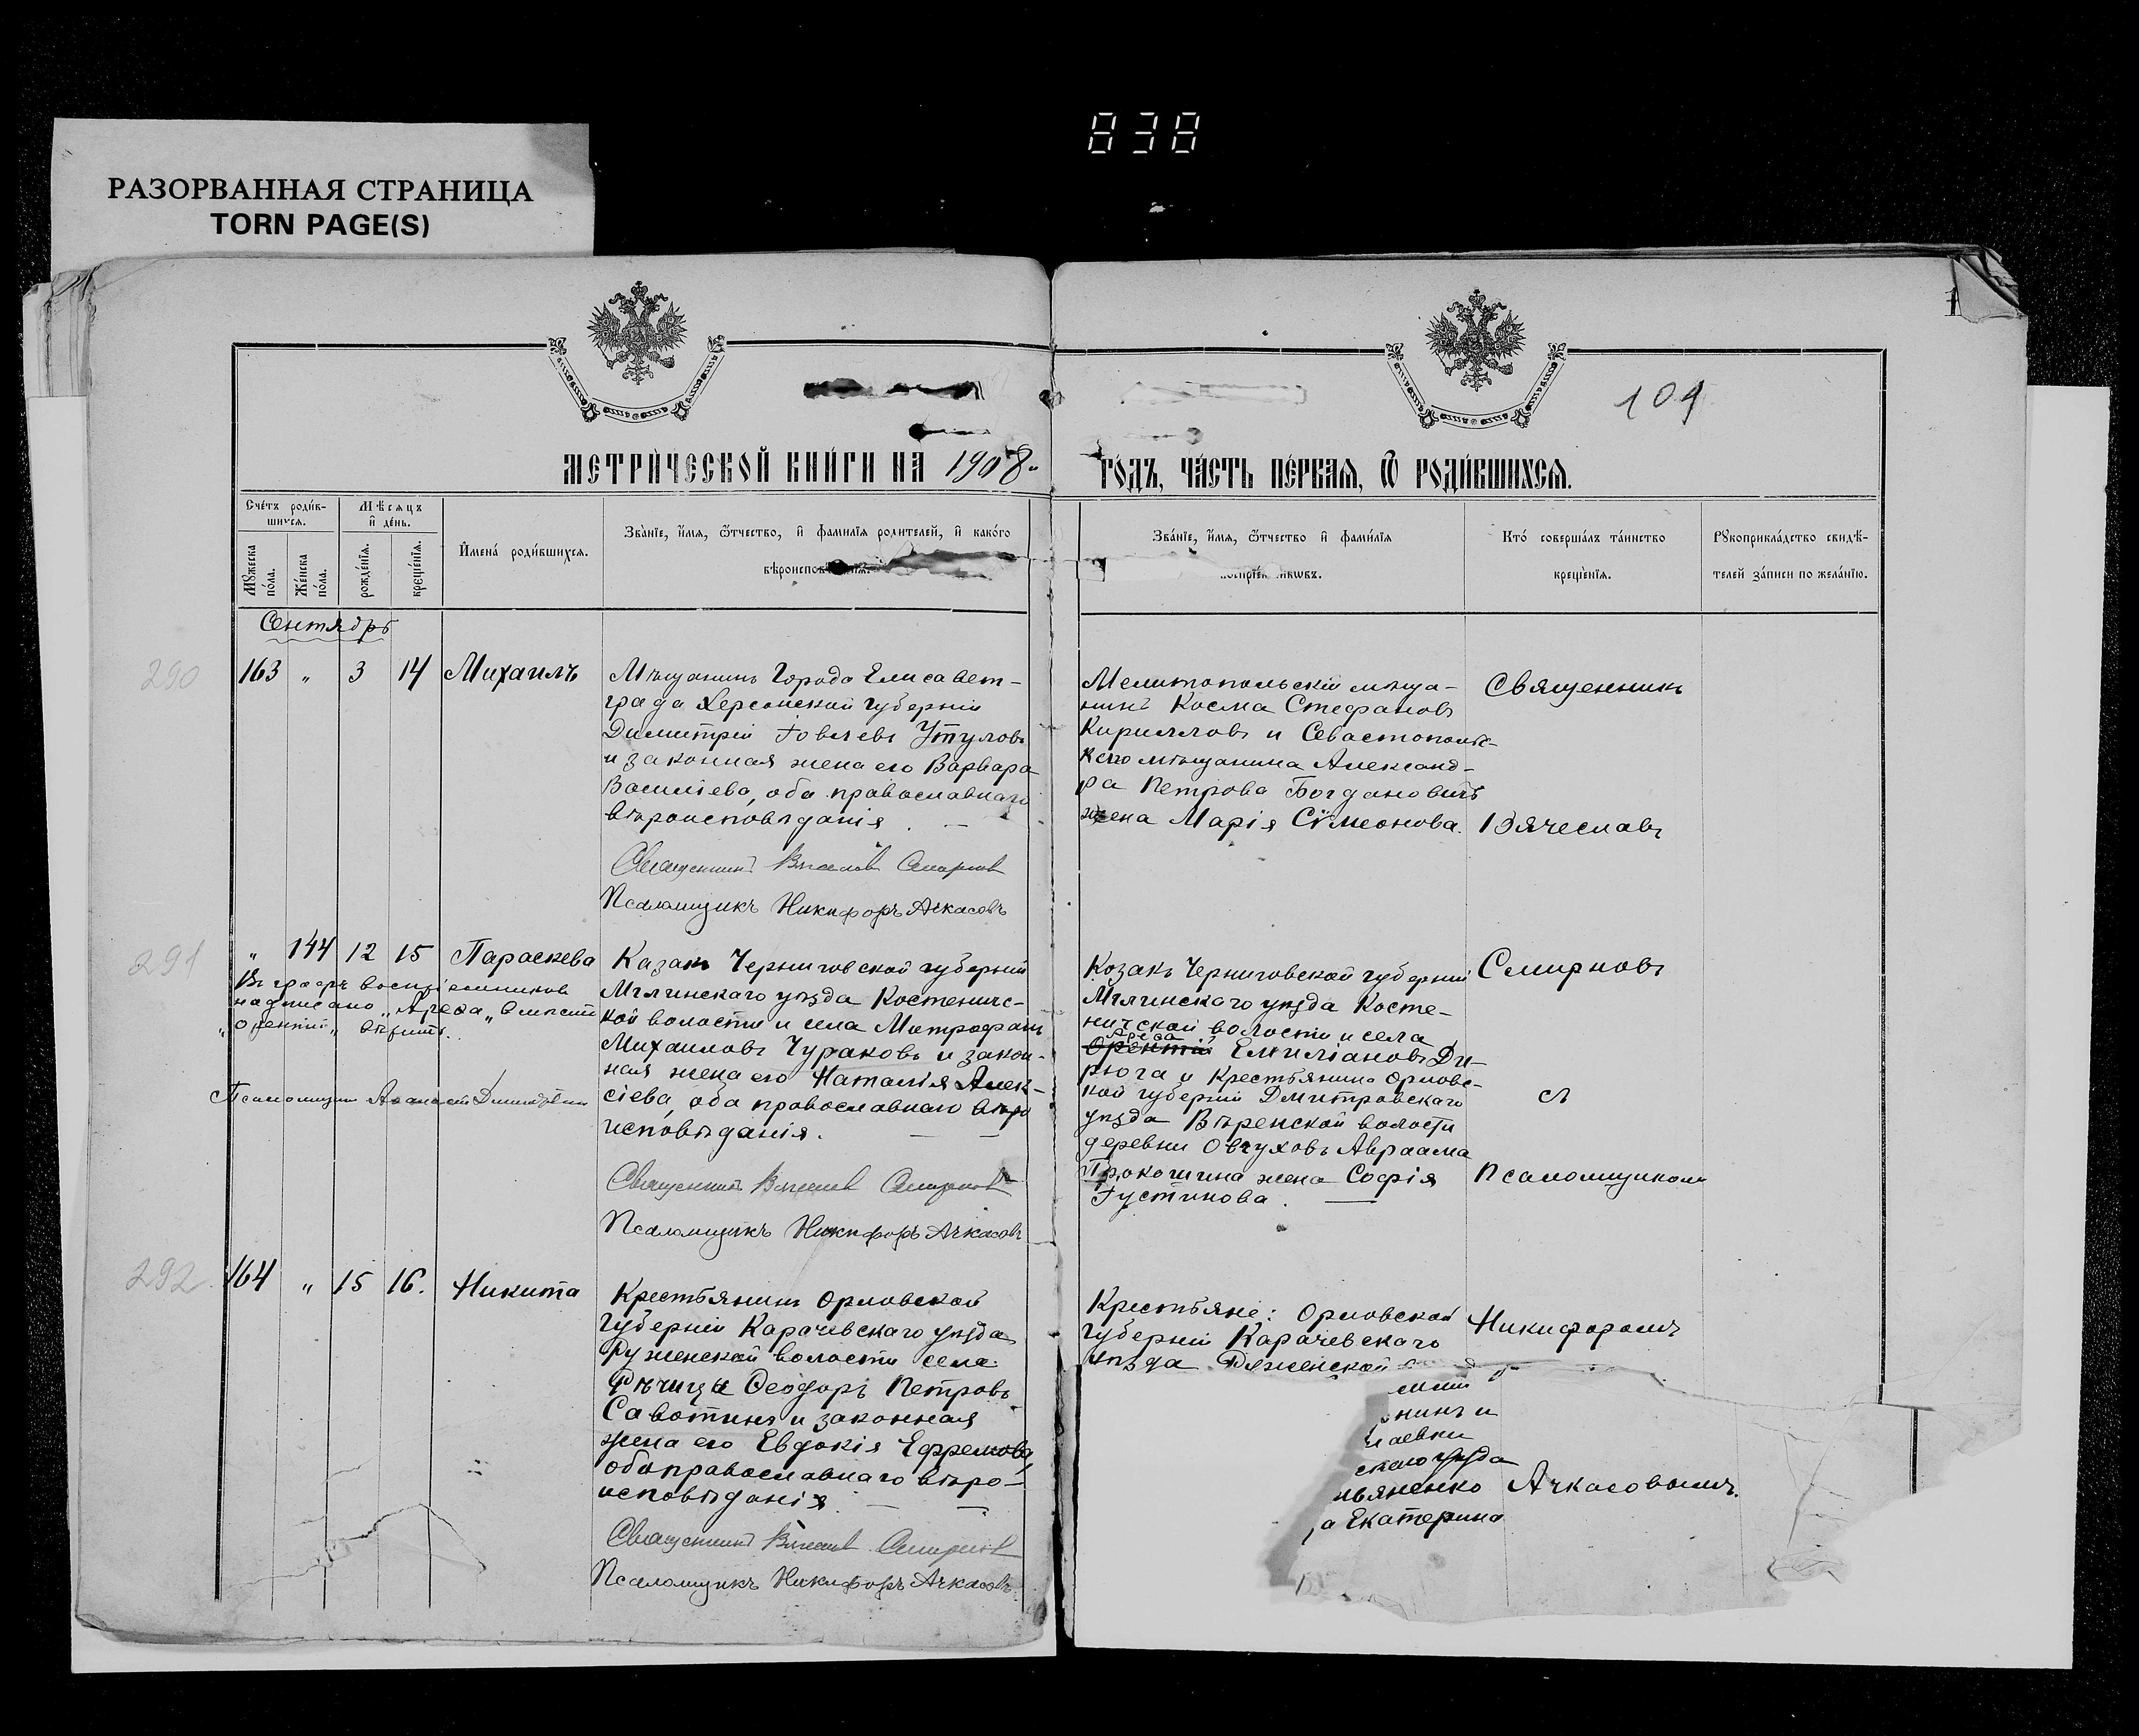 838
РАЗОРВАННАЯ СТРАНИЦА
TORN PAGE(S)
104
МЕТРИ́ЧЕСКОЙ КНИ́ГИ НА 1908
ГО́ДЪ, ЧА́СТЬ ПЕ́РВАЯ, Ѿ РОДИ́ВШИХСѦ.
Сче́тъ роди́в-
шихсѧ.
Мѣ́сѧцъ
и҆ де́нь.
Мꙋ́жеска
по́ла.
Же́нска
по́ла.
рожде́нїѧ.
креще́нїѧ.
И҆мена́ роди́вшихсѧ.
Зва́нїе, и҆́мѧ, ѻ҆́тчество, и҆ фами́лїѧ роди́телей, и҆ како́го
вѣроиспов
Зва́нїе, и҆́мѧ, ѻ҆́тчество и҆ фами́лїѧ
Кто́ соверша́лъ та́инство
креще́нїѧ.
Рꙋкоприкла́дство свидѣ́-
телей за́писи по жела́нїю.
Сентябрь
290
163 " 3 14 Михаилъ
Мѣщанинъ Города Елисавет-
града Херсонской губерніи
Димитрій Іовлевъ Утуловъ
и законная жена его Варвара
Василіева, оба православнаго
вѣроисповѣданія. —
Священникъ Вячеславъ Смирновъ
Псаломщикъ Никифоръ Ачкасовъ
Мелитопольскій мѣща-
нинъ Косма Стефановъ
Кирилловъ и Севастополь-
скаго мѣщанина Александ-
ра Петрова Богдановичъ
жена Марія Сѵмеонова.
Священникъ
Вячеславъ
291
" 144 12 15 Параскева
Въ графѣ воспріемниковъ
надписано „Ареѳа„ вмѣсто
вѣрить.
Псаломщикъ
Казакъ Черниговской губерніи
Мглинскаго уѣзда Костенич-
кой волости и села Митрофанъ
Михаиловъ Чураковъ и закон-
ная жена его Наталія Алек-
сіева, оба православнаго вѣро
исповѣданія. — —
Священникъ Вячеславъ Смирновъ
Псаломщикъ Никифоръ Ачкасовъ
Козакъ Черниговской губерніи
Мглинскаго уѣзда Косте-
ничской волости и села
Ареѳа
Емиліановъ Ди-
рюга и Крестьянина Орловс-
кой губерніи Дмитровскаго
уѣзда Вѣренской волости
деревни Овчуховъ Авраама
Прокошина жена Софія
Густинова. —
Смирновъ
съ
Псаломщикомъ
292
164 " 15 16. Никита
Крестьянинъ Орловской
губерніи Карачевскаго уѣзда
Руженской волости села
Рѣчицы Ѳеодоръ Петровъ
Савотинъ и законная
жена его Евдокія Ефремова,
оба православнаго вѣро-
исповѣданія. — —
Священникъ Вячеславъ Смирновъ
Псаломщикъ Никифоръ Ачкасовъ
Крестьяне: Орловской
губерніи Карачевскаго
уѣзда
нинъ и
лаевки
скаго уѣзда
ьяненко
а Екатерина
Никифоромъ
Ачкасовымъ.